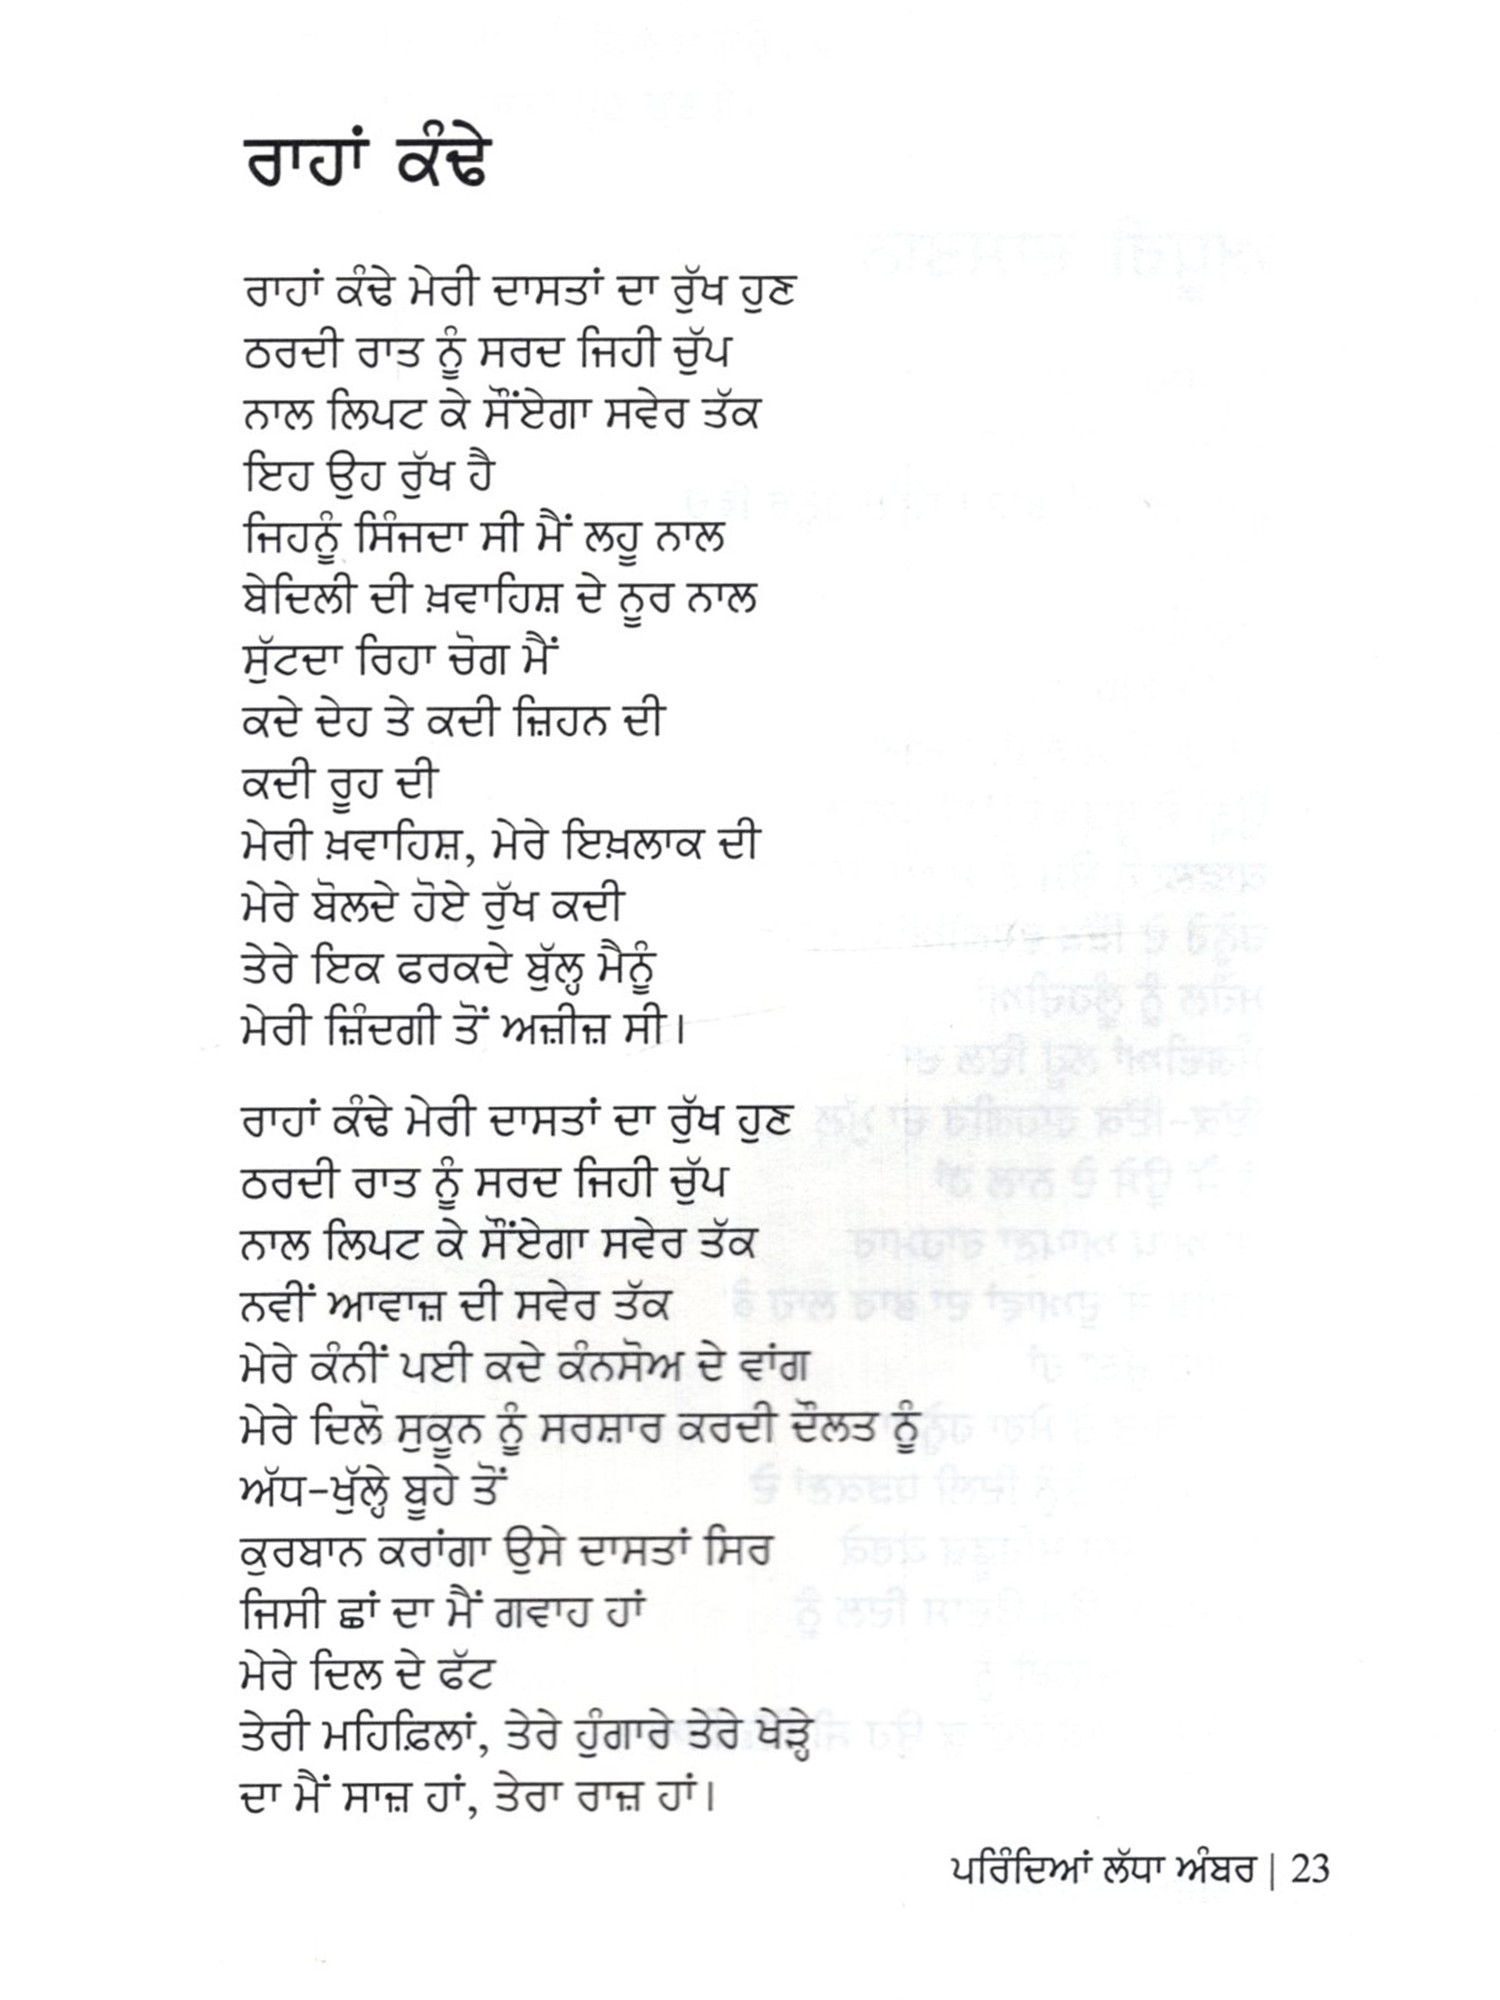 ਰਾਹਾਂ ਕੰਢੇ
ਰਾਹਾਂ ਕੰਢੇ ਮੇਰੀ ਦਾਸਤਾਂ ਦਾ ਰੁੱਖ ਹੁਣ
ਠਰਦੀ ਰਾਤ ਨੂੰ ਸਰਦ ਜਿਹੀ ਚੁੱਪ
ਨਾਲ ਲਿਪਟ ਕੇ ਸੌਂਏਗਾ ਸਵੇਰ ਤੱਕ
ਇਹ ਉਹ ਰੁੱਖ ਹੈ
ਜਿਹਨੂੰ ਸਿੰਜਦਾ ਸੀ ਮੈਂ ਲਹੂ ਨਾਲ
ਬੇਦਿਲੀ ਦੀ ਖ਼ਵਾਹਿਸ਼ ਦੇ ਨੂਰ ਨਾਲ
ਸੁੱਟਦਾ ਰਿਹਾ ਚੋਗ ਮੈਂ
ਕਦੇ ਦੇਹ ਤੇ ਕਦੀ ਜ਼ਿਹਨ ਦੀ
ਕਦੀ ਰੂਹ ਦੀ
ਮੇਰੀ ਖ਼ਵਾਹਿਸ਼, ਮੇਰੇ ਇਖ਼ਲਾਕ ਦੀ
ਮੇਰੇ ਬੋਲਦੇ ਹੋਏ ਰੁੱਖ ਕਦੀ
ਤੇਰੇ ਇਕ ਫਰਕਦੇ ਬੁੱਲ੍ਹ ਮੈਨੂੰ
ਮੇਰੀ ਜ਼ਿੰਦਗੀ ਤੋਂ ਅਜ਼ੀਜ਼ ਸੀ।
ਰਾਹਾਂ ਕੰਢੇ ਮੇਰੀ ਦਾਸਤਾਂ ਦਾ ਰੁੱਖ ਹੁਣ
ਠਰਦੀ ਰਾਤ ਨੂੰ ਸਰਦ ਜਿਹੀ ਚੁੱਪ
ਨਾਲ ਲਿਪਟ ਕੇ ਸੌਂਏਗਾ ਸਵੇਰ ਤੱਕ
ਨਵੀਂ ਆਵਾਜ਼ ਦੀ ਸਵੇਰ ਤੱਕ
ਮੇਰੇ ਕੰਨੀਂ ਪਈ ਕਦੇ ਕੰਨਸੋਅ ਦੇ ਵਾਂਗ
ਮੇਰੇ ਦਿਲੋ ਸੁਕੂਨ ਨੂੰ ਸਰਸ਼ਾਰ ਕਰਦੀ ਦੌਲਤ ਨੂੰ
ਅੱਧ-ਖੁੱਲ੍ਹੇ ਬੂਹੇ ਤੋਂ
ਕੁਰਬਾਨ ਕਰਾਂਗਾ ਉਸੇ ਦਾਸਤਾਂ ਸਿਰ
ਜਿਸੀ ਛਾਂ ਦਾ ਮੈਂ ਗਵਾਹ ਹਾਂ
ਮੇਰੇ ਦਿਲ ਦੇ ਫੱਟ
ਤੇਰੀ ਮਹਿਫ਼ਿਲਾਂ, ਤੇਰੇ ਹੁੰਗਾਰੇ ਤੇਰੇ ਖੇੜ੍ਹੇ
ਦਾ ਮੈਂ ਸਾਜ਼ ਹਾਂ, ਤੇਰਾ ਰਾਜ਼ ਹਾਂ।
ਪਰਿੰਦਿਆਂ ਲੱਧਾ ਅੰਬਰ | 23